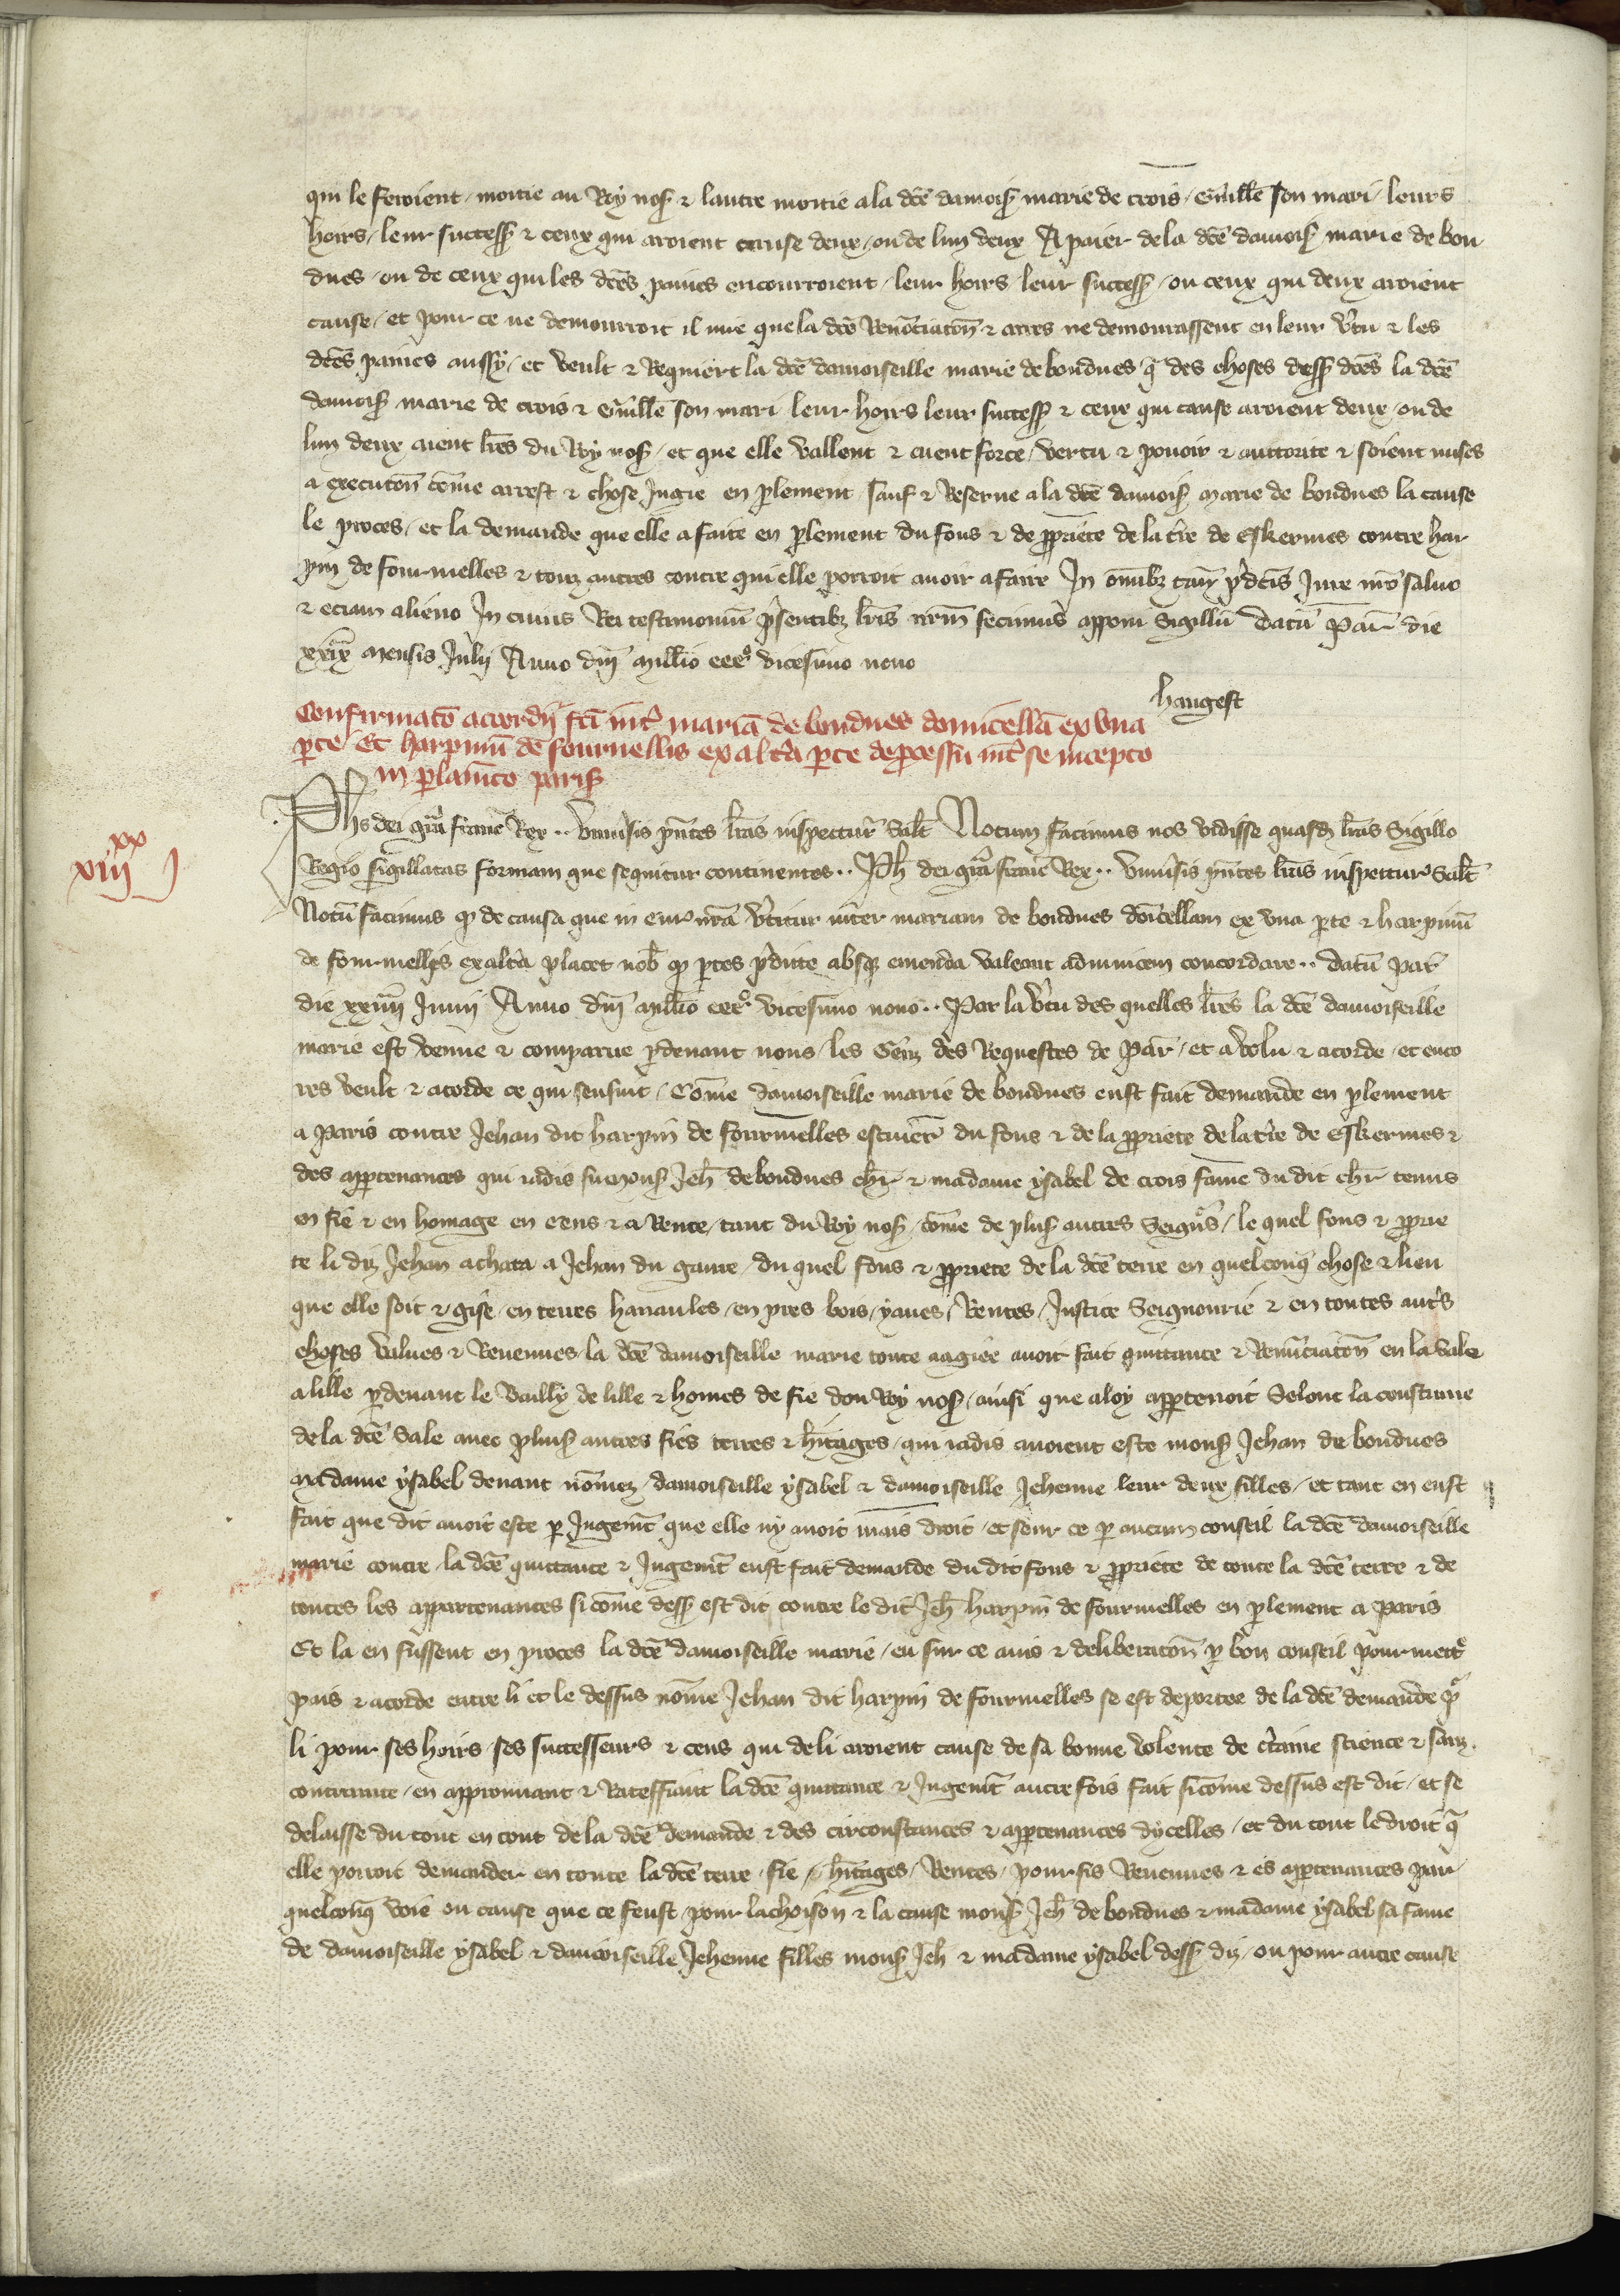 qui le feroient / moitie au Roy nos̃ & lautre moitie a la dcẽ damois̃ marie de crois / Guillẽ son mari / leurs
hoirs / leur success̃ & ceux qui aroient cause deux / ou de lun deux A paier de la dcẽ damois̃ marie de bon
dues / ou de ceux qui les dcẽs paines encourroient / leur hoirs leur success̃ / ou ceux qui deux aroient
cause / et pour ce ne demourroit il mie que la dcẽ Renõciatoñ & acres ne demourassent en leur v̾tu & les
dcẽs paines aussy / et veult & Requiert la dcẽ damoiseille marie de bondues q̃ des choses dess̃ dcẽs la dcẽ
damois̃ marie de crois & Guillẽ son mari leur hoirs leur success̃ & ceux qui cause aroient deux / ou de
lun deux aient lr̃es du Roy nos̃ / et que elle vallent & aient force / vertu & pouoir & auttorite & soient mises
a executoñ cõme arrest & chose Jugie en p̱lement / sauf & Reserue a la dcẽ damois̃ Marie de bondues la cause
le proces / et la demande que elle a faite en p̱lement du fons & de p̱priete de la t̾re de Eskermes contre har
pin de fournuelles & touz autres contre qui elle porroit auoir a faire In om̃ibȝ tam̃ p̾dcĩs Jure nr̃o saluo
& eciam alieno In cuius Rei testimoniũ p̾sentibȝ lr̃is nr̃m fecimus apponi Sigillũ Datũ Par̃ die
xxixᵃ Mensis Julij Anno dñi Mill̃io cccᵒ vicesimo nono
hangest
Confirmatõ accordij fc̃i int̾ mariã de bondues domicellã ex vna
p̱te Et harpinũ de fournellis ex alt̾a p̱te de p̱cessu int̾ se incepto
in p̱lam̃to paris̃
xiiijˣˣ j
Phs dei gr̃a franc̃ Rex .. Vniu̾sis p̃ntes lr̃as inspectur̃ Salt̃ Notum facimus nos vidisse quasd̃ lr̃as Sigillo
Regio sigillatas formam que sequitur continentes .. Ph̃ dei gr̃a franc̃ Rex .. Vniu̾sis p̃ntes lr̃as inspectur̃ Salt̃
Notũ facimus q̱ de causa que in cur̃ nr̃a v̾titur inter mariam de bondues dom̃cellam ex vna p̱te & harpinũ
de fournuellis ex alt̾a placet nob̃ q̱ p̱tes p̾dicte absq̃ emenda valeant adinuicem concordare .. Datũ Par̃
die xxiiij Junij Anno dñi Mill̃io cccᵒ vicesimo nono .. Par la v̾tu des quelles lr̃es la dcẽ damoiseille
marie est venue & comparue p̱deuant nous / les Genz des Requestes de Par̃ / et a volu & acorde / et enco
res veult & acorde ce qui sensuit / Cõme damoiseille marie de bondues eust fait demande en p̱lement
a Paris contre Jehan dit harpin de fournuelles escuier du fons & de la p̱priete de la t̾re de Eskermes &
des ap̱tenances qui iadis fu Mons̃ Jeh̃ de bondues ch̃r & madame ysabel de crois fame du dit ch̃r tenus
en fie & en homage en cens & a Rente / tant du Roy nos̃ / cõme de plus̃ autres Seign̾s / le quel fons & p̱prie
te li diz Jehan achata a Jehan du gauie / du quel fons & p̱priete de la dcẽ terre en quelconq̃ chose & lieu
que elle soit & gise / en terres hanaules / en pres bois / yaues / Rentes / Justice Seignourie & en toutes aut̾s
choses values & Reuenues / la dcẽ damoiseille marie toute aagiee auoit fait quittance & Renũciatoñ en la Sale
a lille p̱deuant le Bailly de lille & homes de fie dou Roy nos̃ / ainsi que a loy ap̱tenoit Selonc la coustume
de la dcẽ Sale auec plus̃ autres fies terres & h̃itages / qui iadis auoient este mons̃ Jehan de bondues
Madame ysabel deuant nõmez / damoiseille ysabel & damoiseille Jehenne leur deux filles / et tant en eust
fait que dit auoit este p̱ Jugem̃t que elle ny auoit mais droit / et sour ce p̱ aucun conseil la dcẽ damoiseille
marie contre la dcẽ quittance & Jugem̃t eust fait demande du dit fons & p̱priete de toute la dcẽ terre & de
toutes les appartenances si cõme dess̃ est dit contre le dit Jeh̃ harpin de fournuelles en p̱lement a Paris
Et la en fussent en proces la dcẽ damoiseille marie / eu sur ce auis & deliberatoñ p̱ bon conseil pour mett̾
pais & acorde entre li et le dessus nõme Jehan dit harpin de fournuelles se est deportee de la dcẽ demande p̱
li pour ses hoirs / ses successeurs & ceus qui de li aroient cause de sa bonne volente de c̾taine science & sanz
contrainte / en approuuant & Ratefiant la dcẽ quittance & Jugem̃t autre fois fait si cõme dessus est dit / et se
delaisse du tout en tout de la dcẽ demande & des circonstances & ap̱tenances dycelles / et du tout le droit q̃
elle porroit demander en toute la dcẽ terre / fie / h̃itages / Rentes / pourfis Reuenues & es ap̱tenances par
quelconq̃ voie ou cause que ce feust / pour lachoison & la cause mons̃ Jeh̃ de bondues & madame ysabel sa fame
de damoiseille ysabel & damoiseille Jehenne filles mons̃ Jeh̃ & madame ysabel dess̃ diz / ou pour autre cause